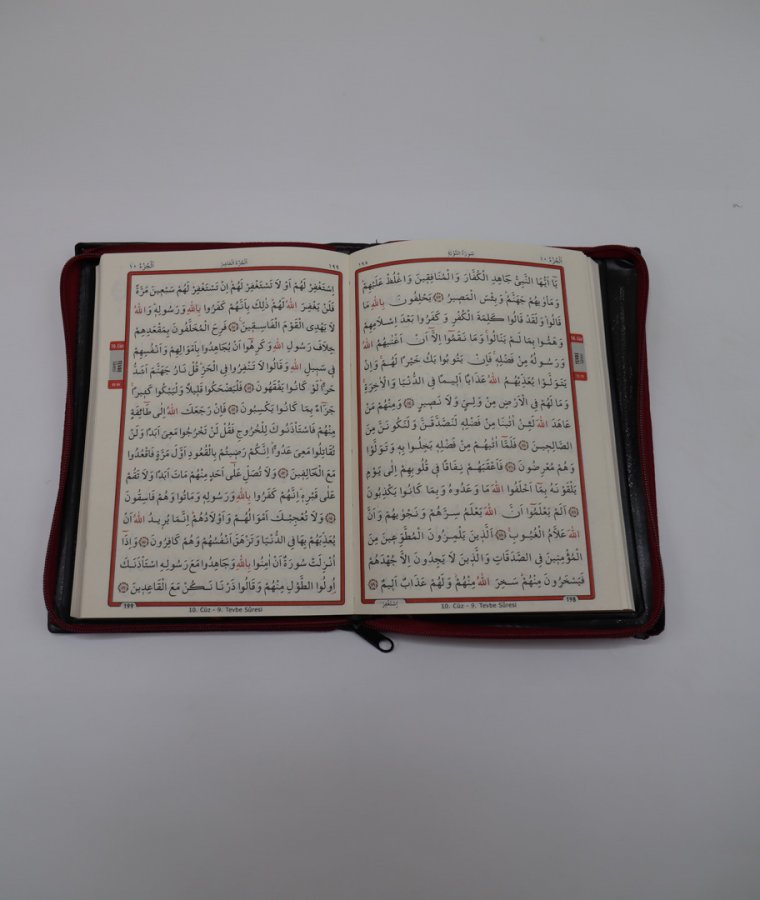 اَلْجُزْءُ ١٠
سُورَةُ التَّوْبَةِ
١٩٨
يَٓا اَيُّهَا النَّبِيُّ جَاهِدِ الْكُفَّارَ وَالْمُنَافِقِينَ وَاغْلُظْ عَلَيْهِمْ
وَمَأْوٰيهُمْ جَهَنَّمُ وَبِئْسَ الْمَصِيرُ ۝ يَحْلِفُونَ بِاللّٰهِ مَا
قَالُوا وَلَقَدْ قَالُوا كَلِمَةَ الْكُفْرِ وَكَفَرُوا بَعْدَ اِسْلَامِهِمْ
وَهَمُّوا بِمَا لَمْ يَنَالُوا وَمَا نَقَمُٓوا اِلَّٓا اَنْ اَغْنٰيهُمُ اللّٰهُ
وَرَسُولُهُ مِنْ فَضْلِهِ فَاِنْ يَتُوبُوا يَكُ خَيْرًا لَهُمْ وَاِنْ
يَتَوَلَّوْا يُعَذِّبْهُمُ اللّٰهُ عَذَابًا اَلِيمًا فِي الدُّنْيَا وَالْاٰخِرَةِ
وَمَا لَهُمْ فِي الْاَرْضِ مِنْ وَلِيٍّ وَلَا نَصِيرٍ ۝ وَمِنْهُمْ مَنْ
عَاهَدَ اللّٰهَ لَئِنْ اٰتٰينَا مِنْ فَضْلِهِ لَنَصَّدَّقَنَّ وَلَنَكُونَنَّ مِنَ
الصَّالِحِينَ ۝ فَلَمَّٓا اٰتٰيهُمْ مِنْ فَضْلِهِ بَخِلُوا بِهِ وَتَوَلَّوْا
وَهُمْ مُعْرِضُونَ ۝ فَاَعْقَبَهُمْ نِفَاقًا فِي قُلُوبِهِمْ اِلٰى يَوْمِ
يَلْقَوْنَهُ بِمَٓا اَخْلَفُوا اللّٰهَ مَا وَعَدُوهُ وَبِمَا كَانُوا يَكْذِبُونَ
۝ اَلَمْ يَعْلَمُٓوا اَنَّ اللّٰهَ يَعْلَمُ سِرَّهُمْ وَنَجْوٰيهُمْ وَاَنَّ
اللّٰهَ عَلَّامُ الْغُيُوبِ ۝ اَلَّذِينَ يَلْمِزُونَ الْمُطَّوِّعِينَ مِنَ
الْمُؤْمِنِينَ فِي الصَّدَقَاتِ وَالَّذِينَ لَا يَجِدُونَ اِلَّا جُهْدَهُمْ
فَيَسْخَرُونَ مِنْهُمْ سَخِرَ اللّٰهُ مِنْهُمْ وَلَهُمْ عَذَابٌ اَلِيمٌ ۝
198
10. Cüz - 9. Tevbe Sûresi
اِسْتَغْفِرْ
اَلْجُزْءُ ١٠
اَلْجُزْءُ الْعَاشِرُ
١٩٩
اِسْتَغْفِرْ لَهُمْ اَوْ لَا تَسْتَغْفِرْ لَهُمْ اِنْ تَسْتَغْفِرْ لَهُمْ سَبْعِينَ مَرَّةً
فَلَنْ يَغْفِرَ اللّٰهُ لَهُمْ ذٰلِكَ بِاَنَّهُمْ كَفَرُوا بِاللّٰهِ وَرَسُولِهِ وَاللّٰهُ
لَا يَهْدِي الْقَوْمَ الْفَاسِقِينَ ۝ فَرِحَ الْمُخَلَّفُونَ بِمَقْعَدِهِمْ
خِلَافَ رَسُولِ اللّٰهِ وَكَرِهُٓوا اَنْ يُجَاهِدُوا بِاَمْوَالِهِمْ وَاَنْفُسِهِمْ
فِي سَبِيلِ اللّٰهِ وَقَالُوا لَا تَنْفِرُوا فِي الْحَرِّ قُلْ نَارُ جَهَنَّمَ اَشَدُّ
حَرًّا لَوْ كَانُوا يَفْقَهُونَ ۝ فَلْيَضْحَكُوا قَلِيلًا وَلْيَبْكُوا كَثِيرًا
جَزَٓاءً بِمَا كَانُوا يَكْسِبُونَ ۝ فَاِنْ رَجَعَكَ اللّٰهُ اِلٰى طَٓائِفَةٍ
مِنْهُمْ فَاسْتَأْذَنُوكَ لِلْخُرُوجِ فَقُلْ لَنْ تَخْرُجُوا مَعِيَ اَبَدًا وَلَنْ
تُقَاتِلُوا مَعِيَ عَدُوًّا اِنَّكُمْ رَضِيتُمْ بِالْقُعُودِ اَوَّلَ مَرَّةٍ فَاقْعُدُوا
مَعَ الْخَالِفِينَ ۝ وَلَا تُصَلِّ عَلٰٓى اَحَدٍ مِنْهُمْ مَاتَ اَبَدًا وَلَا تَقُمْ
عَلٰى قَبْرِهِ اِنَّهُمْ كَفَرُوا بِاللّٰهِ وَرَسُولِهِ وَمَاتُوا وَهُمْ فَاسِقُونَ
۝ وَلَا تُعْجِبْكَ اَمْوَالُهُمْ وَاَوْلَادُهُمْ اِنَّمَا يُرِيدُ اللّٰهُ اَنْ
يُعَذِّبَهُمْ بِهَا فِي الدُّنْيَا وَتَزْهَقَ اَنْفُسُهُمْ وَهُمْ كَافِرُونَ ۝ وَاِذَٓا
اُنْزِلَتْ سُورَةٌ اَنْ اٰمِنُوا بِاللّٰهِ وَجَاهِدُوا مَعَ رَسُولِهِ اسْتَأْذَنَكَ
اُولُوا الطَّوْلِ مِنْهُمْ وَقَالُوا ذَرْنَا نَكُنْ مَعَ الْقَاعِدِينَ ۝
199
10. Cüz - 9. Tevbe Sûresi